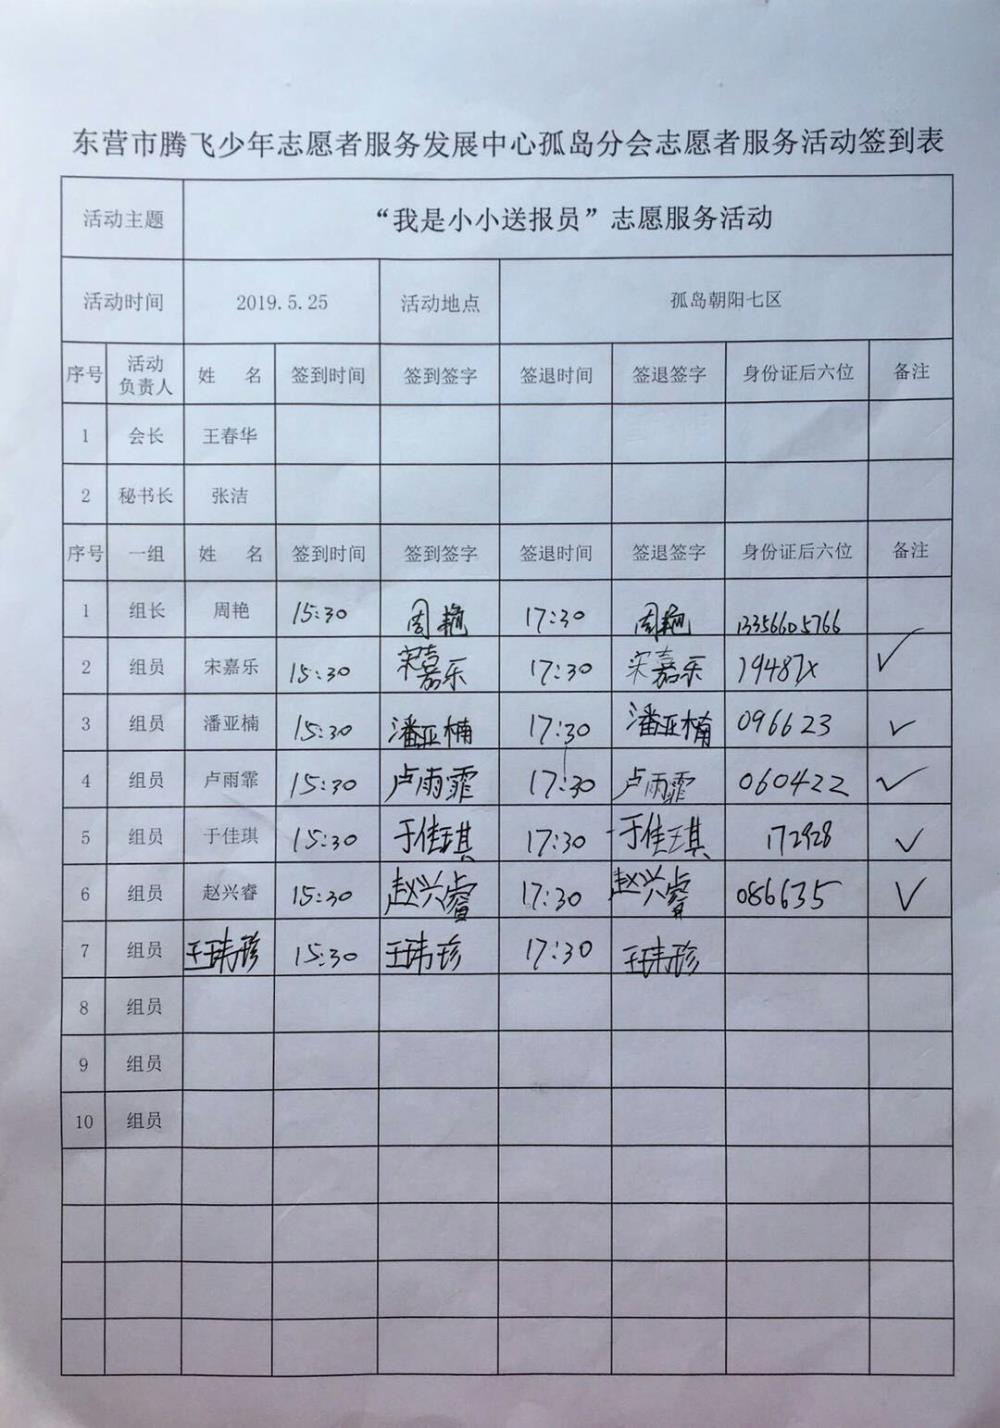 东营市腾飞少年志愿者服务发展中心孤岛分会志愿者服务活动签到表
活动主题 “我是小小送报员”志愿服务活动
活动时间 2019.5.25 活动地点 孤岛朝阳七区
序号 活动负责人 姓 名 签到时间 签到签字 签退时间 签退签字 身份证后六位 备注
1 会长 王春华
2 秘书长 张洁
序号 一组 姓 名 签到时间 签到签字 签退时间 签退签字 身份证后六位 备注
1 组长 周艳 15:30 周艳 17:30 周艳 13356605766
2 组员 宋嘉乐 15:30 宋嘉乐 17:30 宋嘉乐 19487X ✓
3 组员 潘亚楠 15:30 潘亚楠 17:30 潘亚楠 096623 ✓
4 组员 卢雨霏 15:30 卢雨霏 17:30 卢雨霏 060422 ✓
5 组员 于佳琪 15:30 于佳琪 17:30 于佳琪 172928 ✓
6 组员 赵兴睿 15:30 赵兴睿 17:30 赵兴睿 086635 ✓
7 组员 王玮珍 15:30 王玮珍 17:30 王玮珍
8 组员
9 组员
10 组员